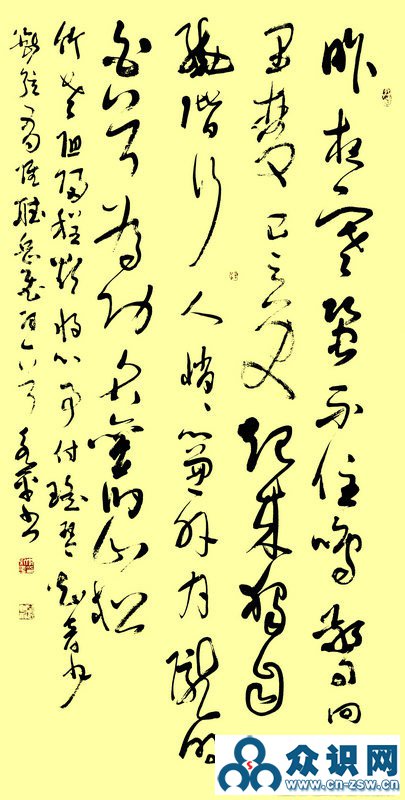 昨夜寒蛩不住鸣惊回
千里梦已三更起来独自
绕阶行人悄悄帘外月胧明
白首为功名旧山松
竹老阻归程欲将心事付瑶琴知音少
弦断有谁听岳飞词
众识网
www.cn-zsw.cn